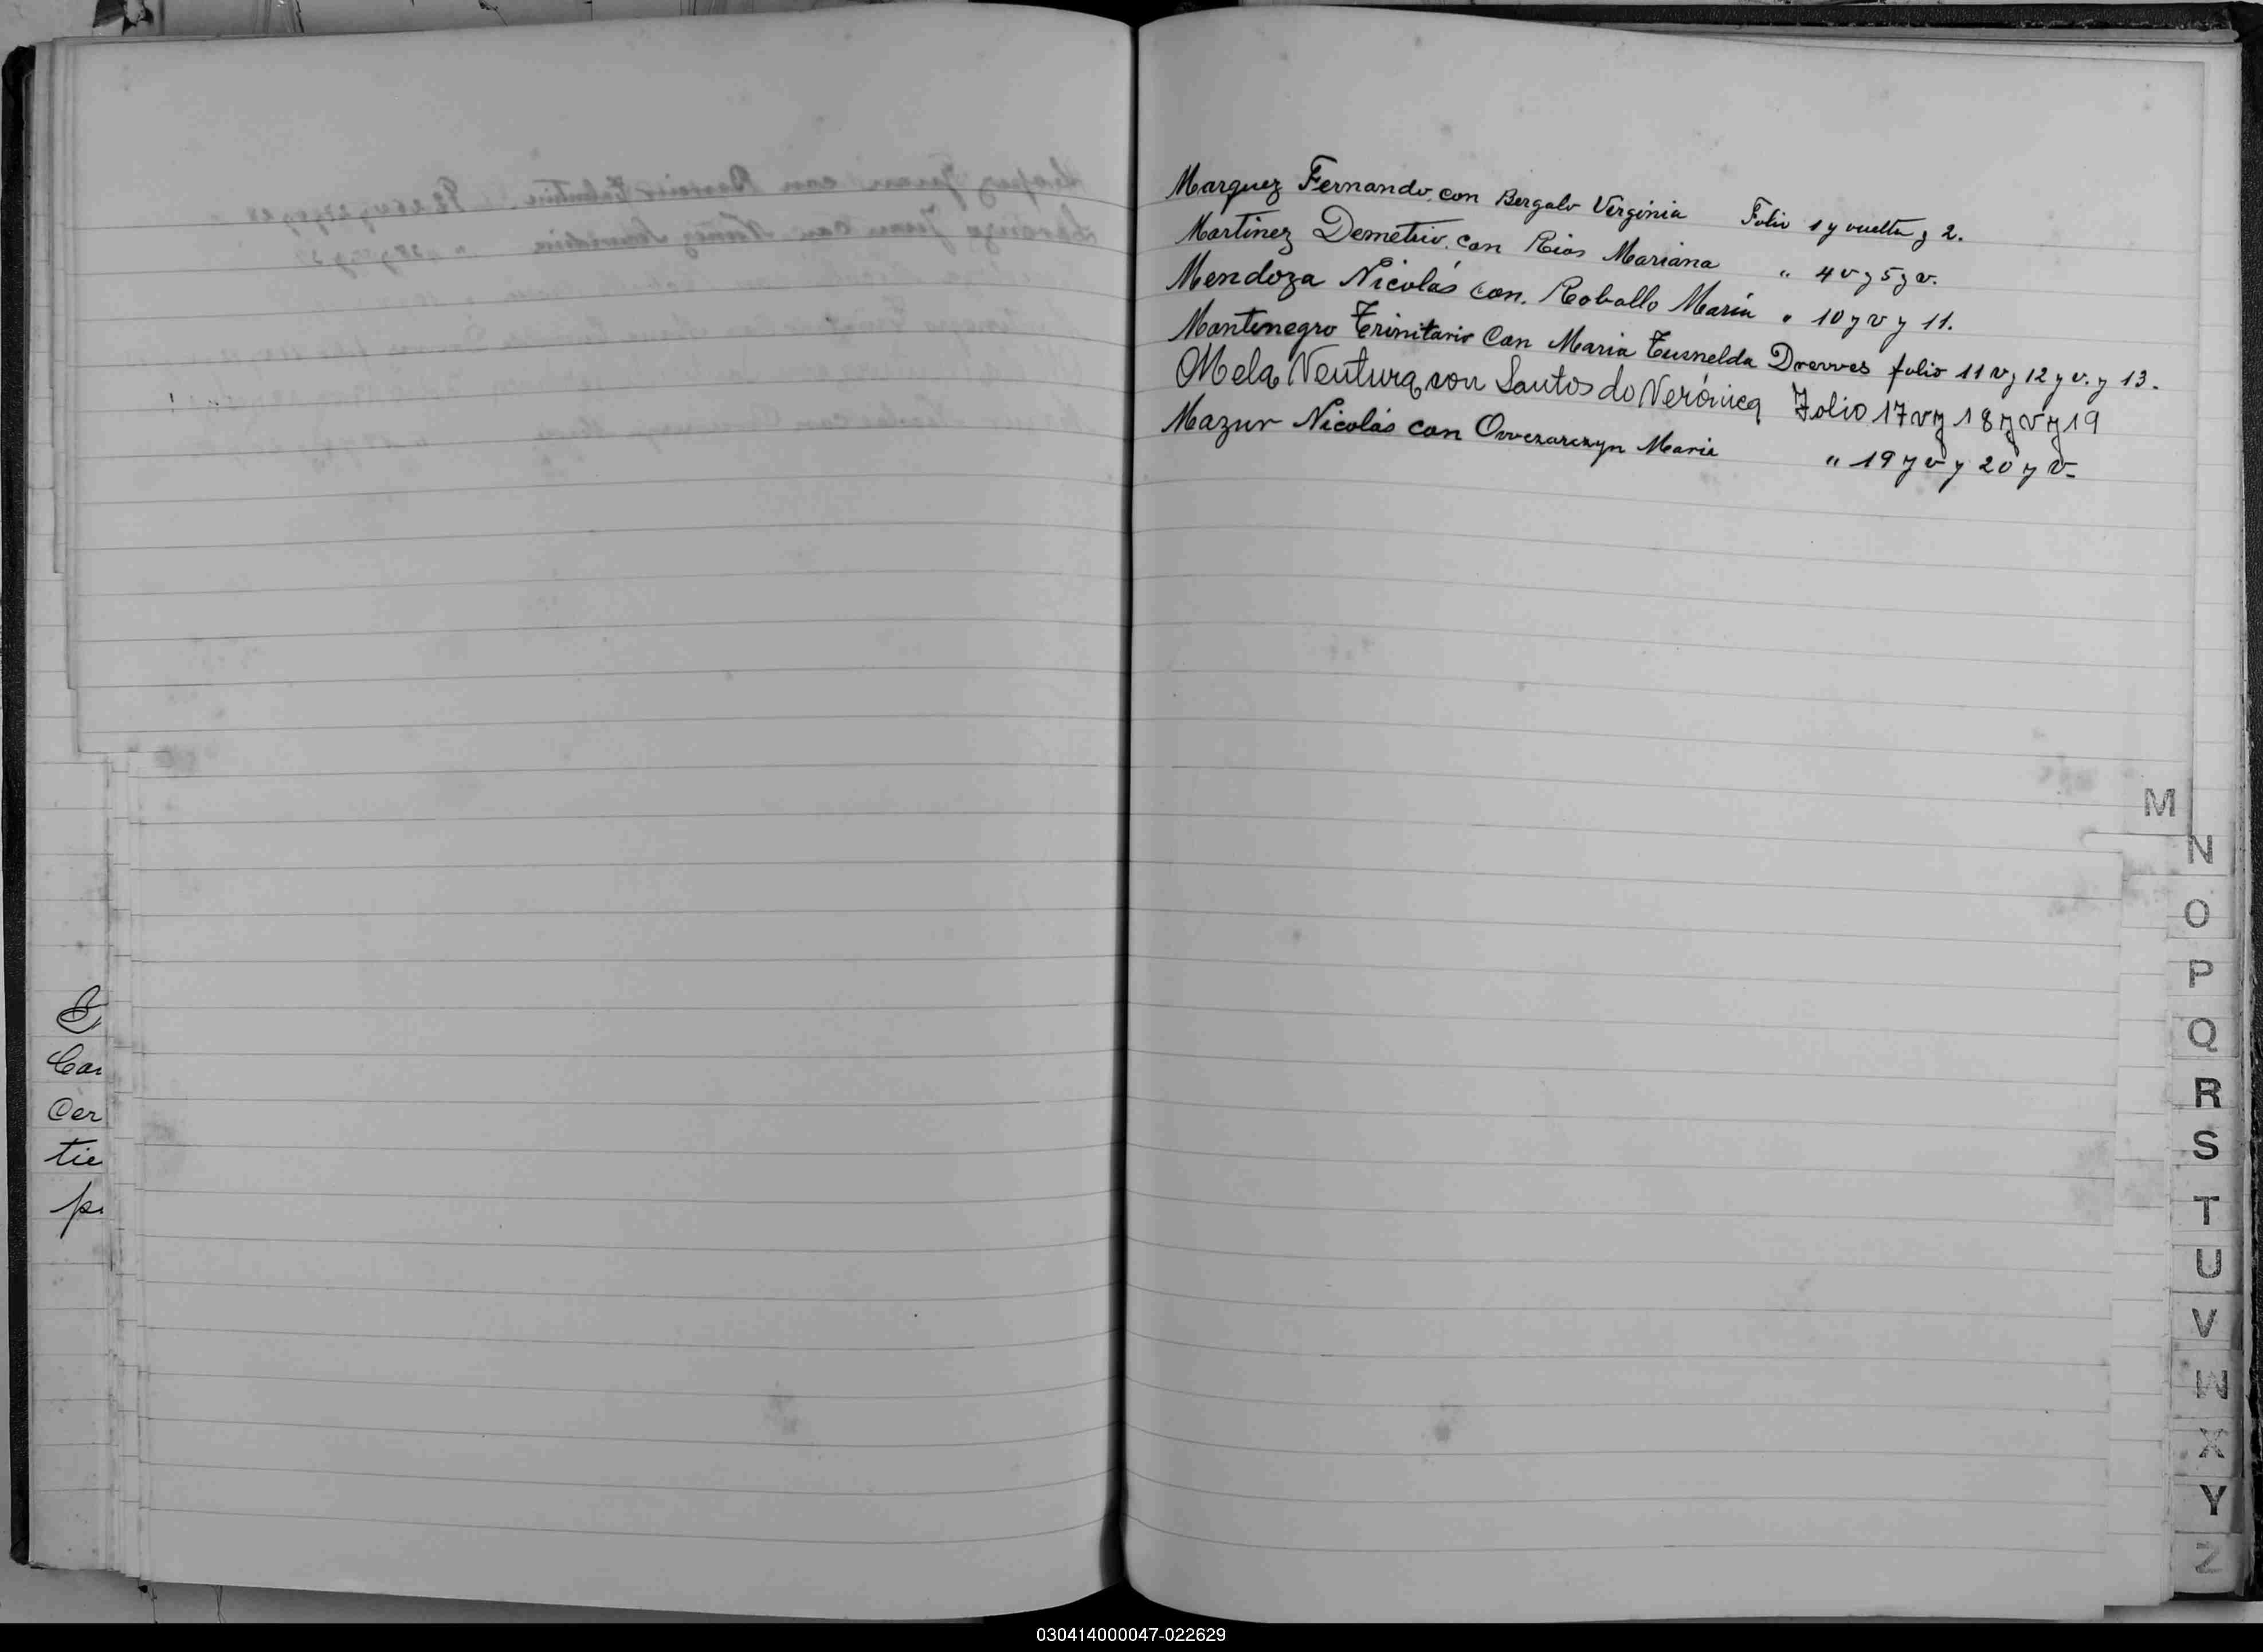 Marquez Fernando, con Bergalo Verginia Folio 1 y vuelta y 2.
Martínez Demetrio, con Rios Mariana " 4 v y 5 y v.
Mendoza Nicolás con. Roballo María " 10 y v y 11.
Montenegro Trinitario Con Maria Tusnelda Drewes folio 11 v y 12 y v. y 13.
Mela Ventura con Santos do Verónica Folio 17 v y 18 y v y 19
Mazur Nicolás con Owczarczyn Maria " 19 y v y 20 y v-
M
N
O
P
Q
R
S
T
U
V
W
X
Y
Z
Cer
tie
030414000047-022629